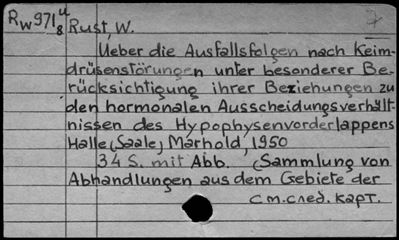 R W 971 u/8 Rust, W.
Ueber die Ausfallsfolgen nach Keim-
drüsenstörungen unter besonderer Be-
rücksichtigung ihrer Beziehungen zu
den hormonalen Ausscheidungsverhält-
nissen des Hypophysenvorderlappens
Halle (Saale) Marhold, 1950
34 S. mit Abb. (Sammlung von
Abhandlungen aus dem Gebiete der
см. след. карт.